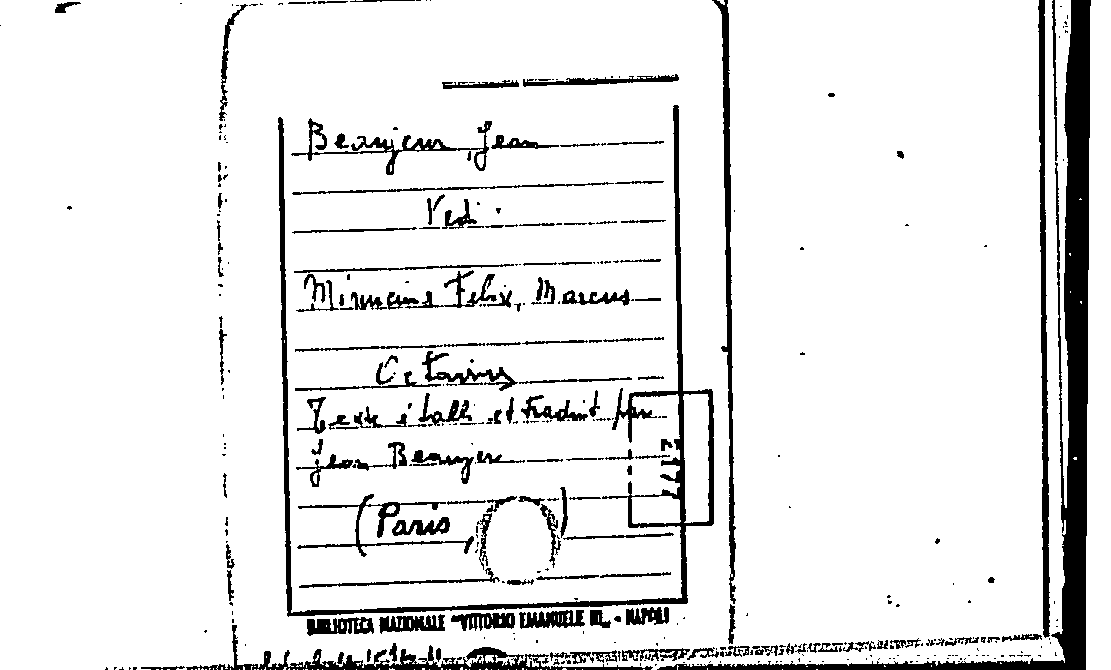 Beaujeur, Jean
Vedi
Minucius Felix, Marcus
Octavius
Texte établi et traduit par
Jean Beaujeu
(Paris, )
E177
BIBLIOTECA NAZIONALE "VITTORIO EMANUELE III" - NAPOLI